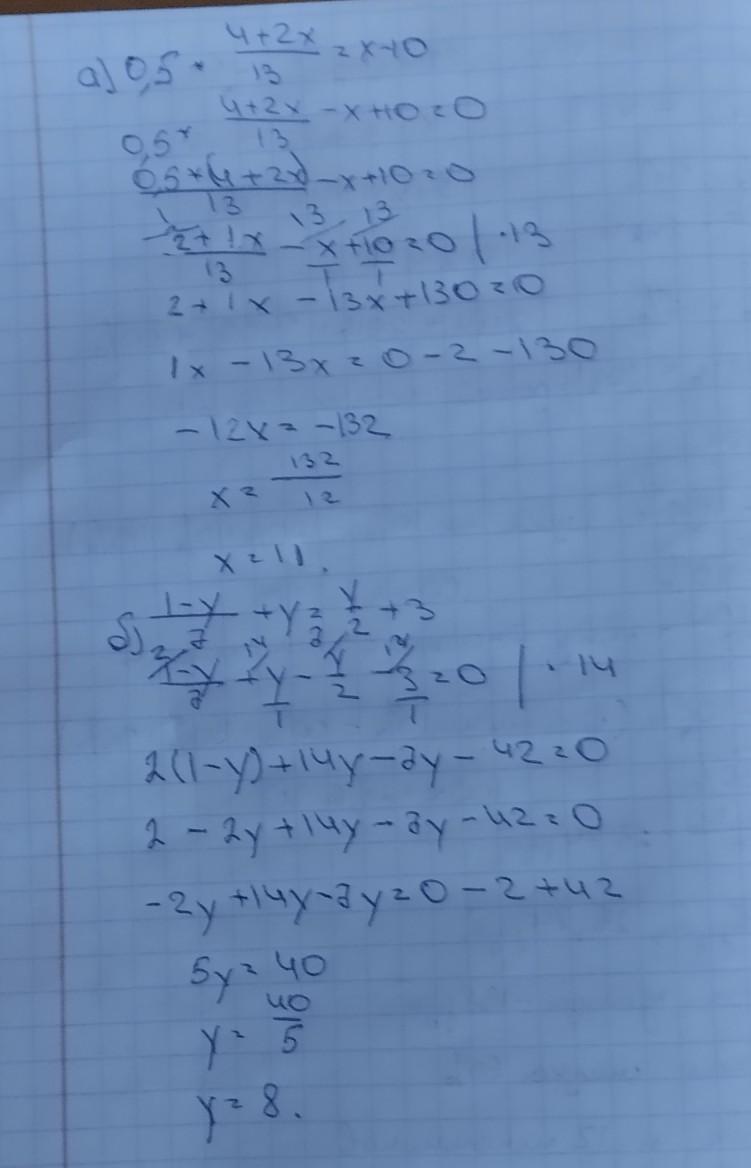 а) 0,5 * (4+2x)/13 = x-10
0,5 * (4+2x)/13 - x+10=0
0,5*(4+2x)/13 - x+10=0
(2+1x)/13 - x/1 + 10/1 = 0 | ·13
2+1x - 13x+130=0
1x - 13x = 0 - 2 - 130
-12x = -132
x = 132/12
x = 11.
б) (1-y)/7 + y = y/2 + 3
(1-y)/7 + y/1 - y/2 - 3/1 = 0 | · 14
2(1-y)+14y-7y-42=0
2-2y+14y-7y-42=0
-2y+14y-7y=0-2+42
5y=40
y = 40/5
y = 8.